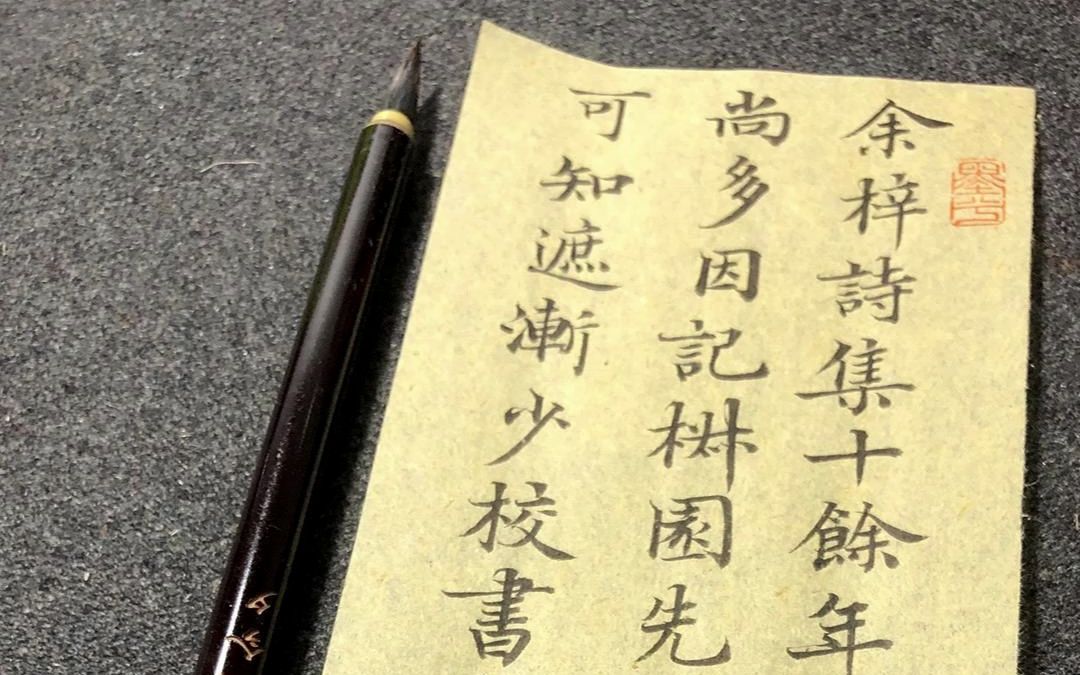 余梓詩集十餘年
尚多因記園先
可知遮漸少校書